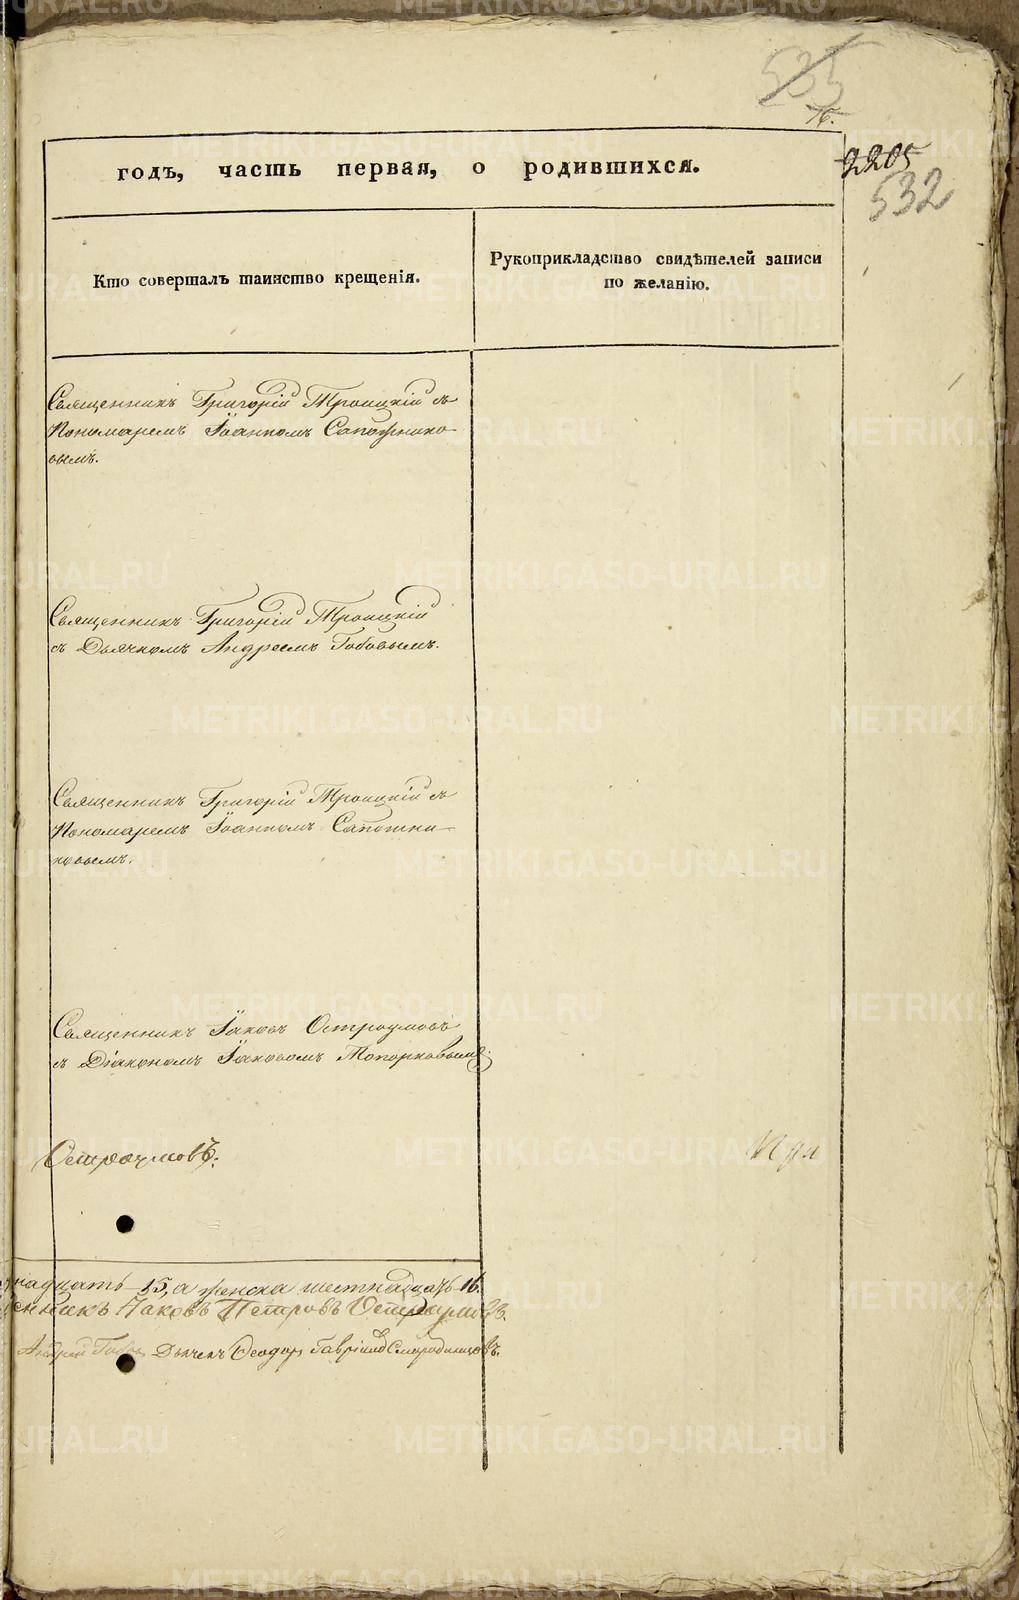 535
76.
годъ, часть первая, о родившихся.
2205
532
Кто совершалъ таинство крещенія.
Рукоприкладство свидѣтелей записи
по желанію.
Священникъ Григорій Троицкій съ
Пономаремъ Іоанномъ Сапожнико-
вымъ.
Священникъ Григорій Троицкій
съ Дьячкомъ Андреемъ Бобовымъ.
Священникъ Григорій Троицкій съ
Пономаремъ Іоанномъ Сапожни-
ковымъ.
Священникъ Іаковъ Остроумовъ
съ Діакономъ Іаковомъ Топорковымъ.
Остроумовъ.
надцать 15, а женска шестнадцать 16.
Іаковъ Петровъ Остроумовъ.
Андрей Дьячекъ Ѳеодоръ Гавріиловъ Смородинцовъ.
METRIKI.GASO-URAL.RU